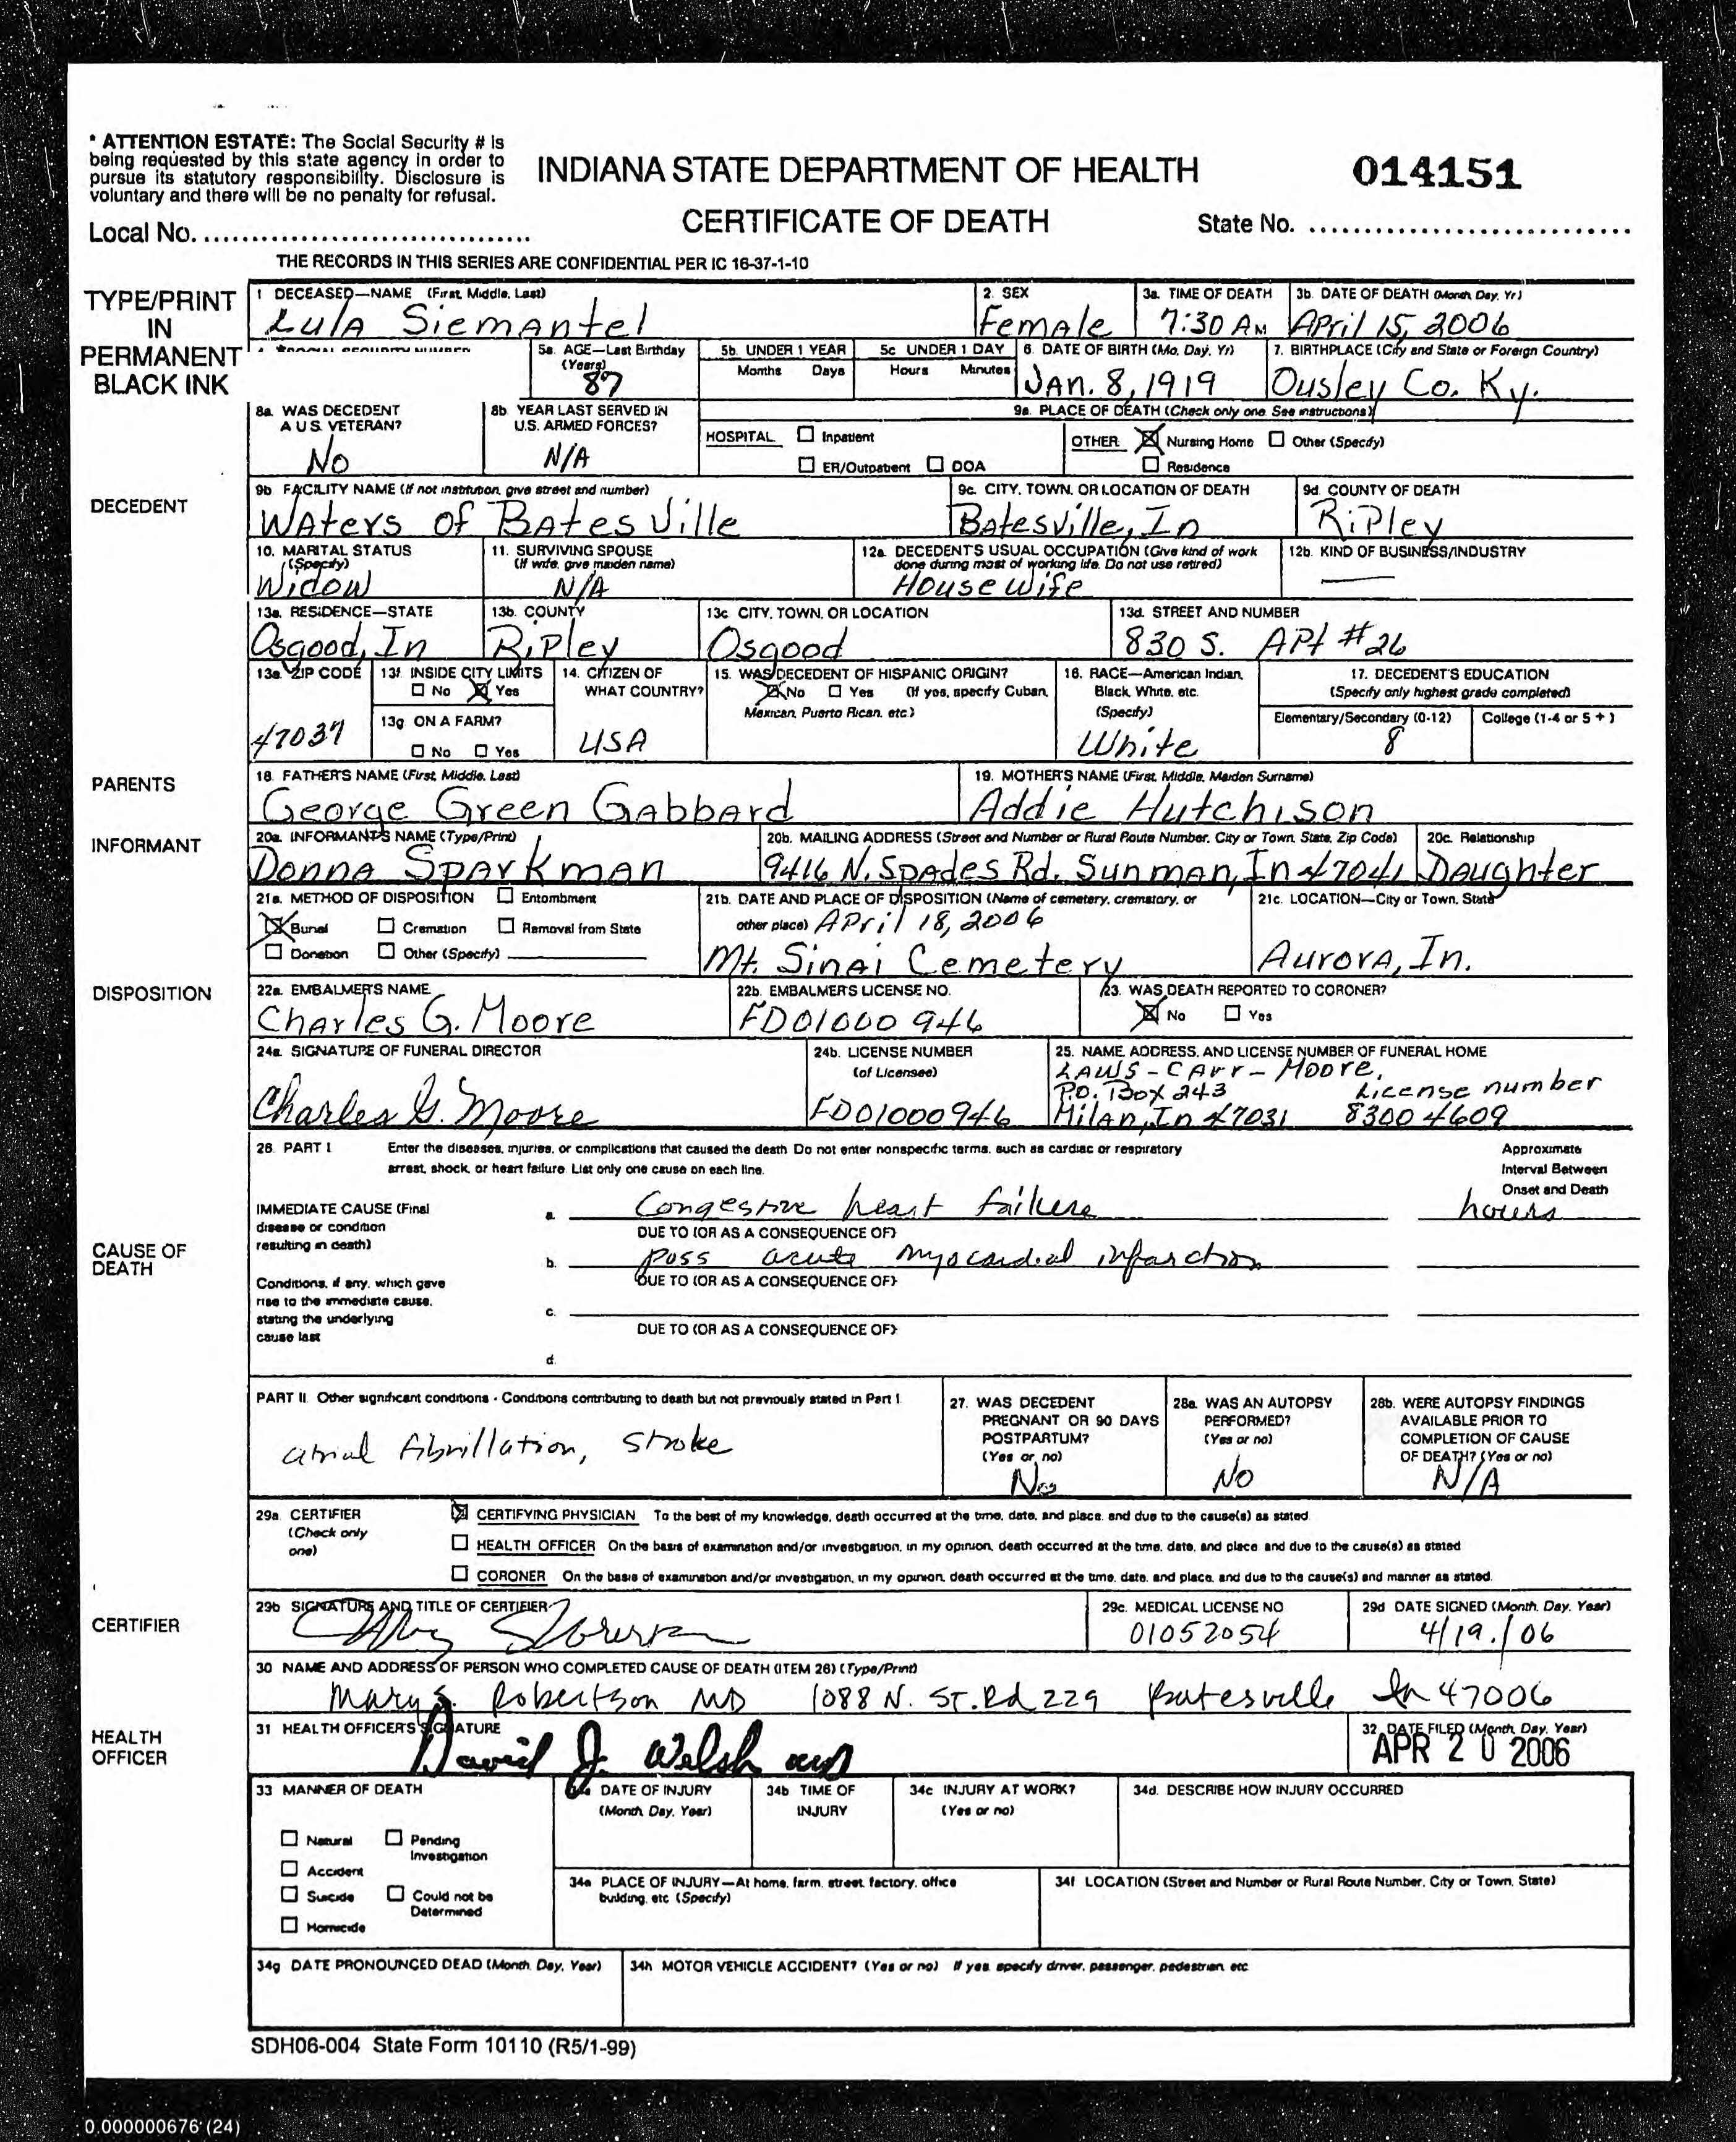 * ATTENTION ESTATE: The Social Security # is
being requested by this state agency in order to
pursue its statutory responsibility. Disclosure is
voluntary and there will be no penalty for refusal.
INDIANA STATE DEPARTMENT OF HEALTH
014151
CERTIFICATE OF DEATH
Local No. ..................................
State No. ..............................
THE RECORDS IN THIS SERIES ARE CONFIDENTIAL PER IC 16-37-1-10
TYPE/PRINT
IN
PERMANENT
BLACK INK
1 DECEASED—NAME (First, Middle, Last)
Lula Siemantel
2. SEX
Female
3a. TIME OF DEATH
7:30 AM
3b. DATE OF DEATH (Month, Day, Yr)
April 15, 2006
5a. AGE—Last Birthday
(Years)
87
5b. UNDER 1 YEAR
Months Days
5c UNDER 1 DAY
Hours Minutes
6. DATE OF BIRTH (Mo, Day, Yr)
Jan. 8, 1919
7. BIRTHPLACE (City and State or Foreign Country)
Ousley Co. Ky.
DECEDENT
8a. WAS DECEDENT
A U S. VETERAN?
No
8b. YEAR LAST SERVED IN
U.S. ARMED FORCES?
N/A
9a. PLACE OF DEATH (Check only one. See instructions)
HOSPITAL Inpatient
ER/Outpatient DOA
OTHER Nursing Home Other (Specify)
Residence
9b FACILITY NAME (If not institution, give street and number)
Waters of Batesville
9c. CITY, TOWN, OR LOCATION OF DEATH
Batesville, In
9d. COUNTY OF DEATH
Ripley
10. MARITAL STATUS
(Specify)
Widow
11. SURVIVING SPOUSE
(If wife, give maiden name)
N/A
12a. DECEDENT'S USUAL OCCUPATION (Give kind of work
done during most of working life. Do not use retired)
Housewife
12b. KIND OF BUSINESS/INDUSTRY
13a. RESIDENCE—STATE
Osgood, In
13b. COUNTY
Ripley
13c. CITY, TOWN, OR LOCATION
Osgood
13d. STREET AND NUMBER
830 S. Apt #26
13e. ZIP CODE
47037
13f. INSIDE CITY LIMITS
No Yes
13g ON A FARM?
No Yes
14. CITIZEN OF
WHAT COUNTRY?
USA
15. WAS DECEDENT OF HISPANIC ORIGIN?
No Yes (If yes, specify Cuban,
Mexican, Puerto Rican, etc)
16. RACE—American Indian,
Black, White, etc.
(Specify)
White
17. DECEDENT'S EDUCATION
(Specify only highest grade completed)
Elementary/Secondary (0-12)
8
College (1-4 or 5 + )
PARENTS
18. FATHER'S NAME (First, Middle, Last)
George Green Gabbard
19. MOTHER'S NAME (First, Middle, Maiden Surname)
Addie Hutchison
INFORMANT
20a. INFORMANT'S NAME (Type/Print)
Donna Sparkman
20b. MAILING ADDRESS (Street and Number or Rural Route Number, City or Town, State, Zip Code)
9416 N. Spades Rd. Sunman, In 47041
20c. Relationship
Daughter
DISPOSITION
21a. METHOD OF DISPOSITION Entombment
Burial Cremation Removal from State
Donation Other (Specify)
21b. DATE AND PLACE OF DISPOSITION (Name of cemetery, crematory, or
other place) April 18, 2006
Mt. Sinai Cemetery
21c. LOCATION—City or Town, State
Aurora, In.
22a. EMBALMER'S NAME
Charles G. Moore
22b. EMBALMER'S LICENSE NO.
FD01000946
23. WAS DEATH REPORTED TO CORONER?
No Yes
24a. SIGNATURE OF FUNERAL DIRECTOR
Charles G. Moore
24b. LICENSE NUMBER
(of Licensee)
FD01000946
25. NAME, ADDRESS, AND LICENSE NUMBER OF FUNERAL HOME
Laws-Carr-Moore,
P.O. Box 243 License number
Milan, In 47031 83004609
CAUSE OF
DEATH
26. PART I. Enter the diseases, injuries, or complications that caused the death Do not enter nonspecific terms, such as cardiac or respiratory
arrest, shock, or heart failure. List only one cause on each line.
Approximate
Interval Between
Onset and Death
IMMEDIATE CAUSE (Final
disease or condition
resulting in death)
a. Congestive heart failure hours
DUE TO (OR AS A CONSEQUENCE OF)
b. poss acute myocardial infarction
DUE TO (OR AS A CONSEQUENCE OF)
Conditions, if any, which gave
rise to the immediate cause,
stating the underlying
cause last
c.
DUE TO (OR AS A CONSEQUENCE OF)
d
PART II. Other significant conditions - Conditions contributing to death but not previously stated in Part I.
atrial fibrillation, stroke
27. WAS DECEDENT
PREGNANT OR 90 DAYS
POSTPARTUM?
(Yes or no)
No
28a. WAS AN AUTOPSY
PERFORMED?
(Yes or no)
No
28b. WERE AUTOPSY FINDINGS
AVAILABLE PRIOR TO
COMPLETION OF CAUSE
OF DEATH? (Yes or no)
N/A
CERTIFIER
29a. CERTIFIER
(Check only
one)
CERTIFYING PHYSICIAN To the best of my knowledge, death occurred at the time, date, and place, and due to the cause(s) as stated.
HEALTH OFFICER On the basis of examination and/or investigation, in my opinion, death occurred at the time, date, and place, and due to the cause(s) as stated
CORONER On the basis of examination and/or investigation, in my opinion, death occurred at the time, date, and place, and due to the cause(s) and manner as stated.
29b SIGNATURE AND TITLE OF CERTIFIER
29c. MEDICAL LICENSE NO
01052054
29d DATE SIGNED (Month, Day, Year)
4/19/06
30 NAME AND ADDRESS OF PERSON WHO COMPLETED CAUSE OF DEATH (ITEM 26) (Type/Print)
Mary S. Robertson MD 1088 N. St. Rd 229 Batesville In 47006
HEALTH
OFFICER
31 HEALTH OFFICER'S SIGNATURE
David J. Welsh
32. DATE FILED (Month, Day, Year)
APR 20 2006
33 MANNER OF DEATH
Natural Pending
Investigation
Accident
Suicide Could not be
Determined
Homicide
DATE OF INJURY
(Month, Day, Year)
34b TIME OF
INJURY
34c INJURY AT WORK?
(Yes or no)
34d. DESCRIBE HOW INJURY OCCURRED
34e PLACE OF INJURY—At home, farm, street, factory, office
building, etc (Specify)
34f LOCATION (Street and Number or Rural Route Number, City or Town, State)
34g DATE PRONOUNCED DEAD (Month, Day, Year)
34h MOTOR VEHICLE ACCIDENT? (Yes or no) If yes, specify driver, passenger, pedestrian, etc
SDH06-004 State Form 10110 (R5/1-99)
0.000000676 (24)